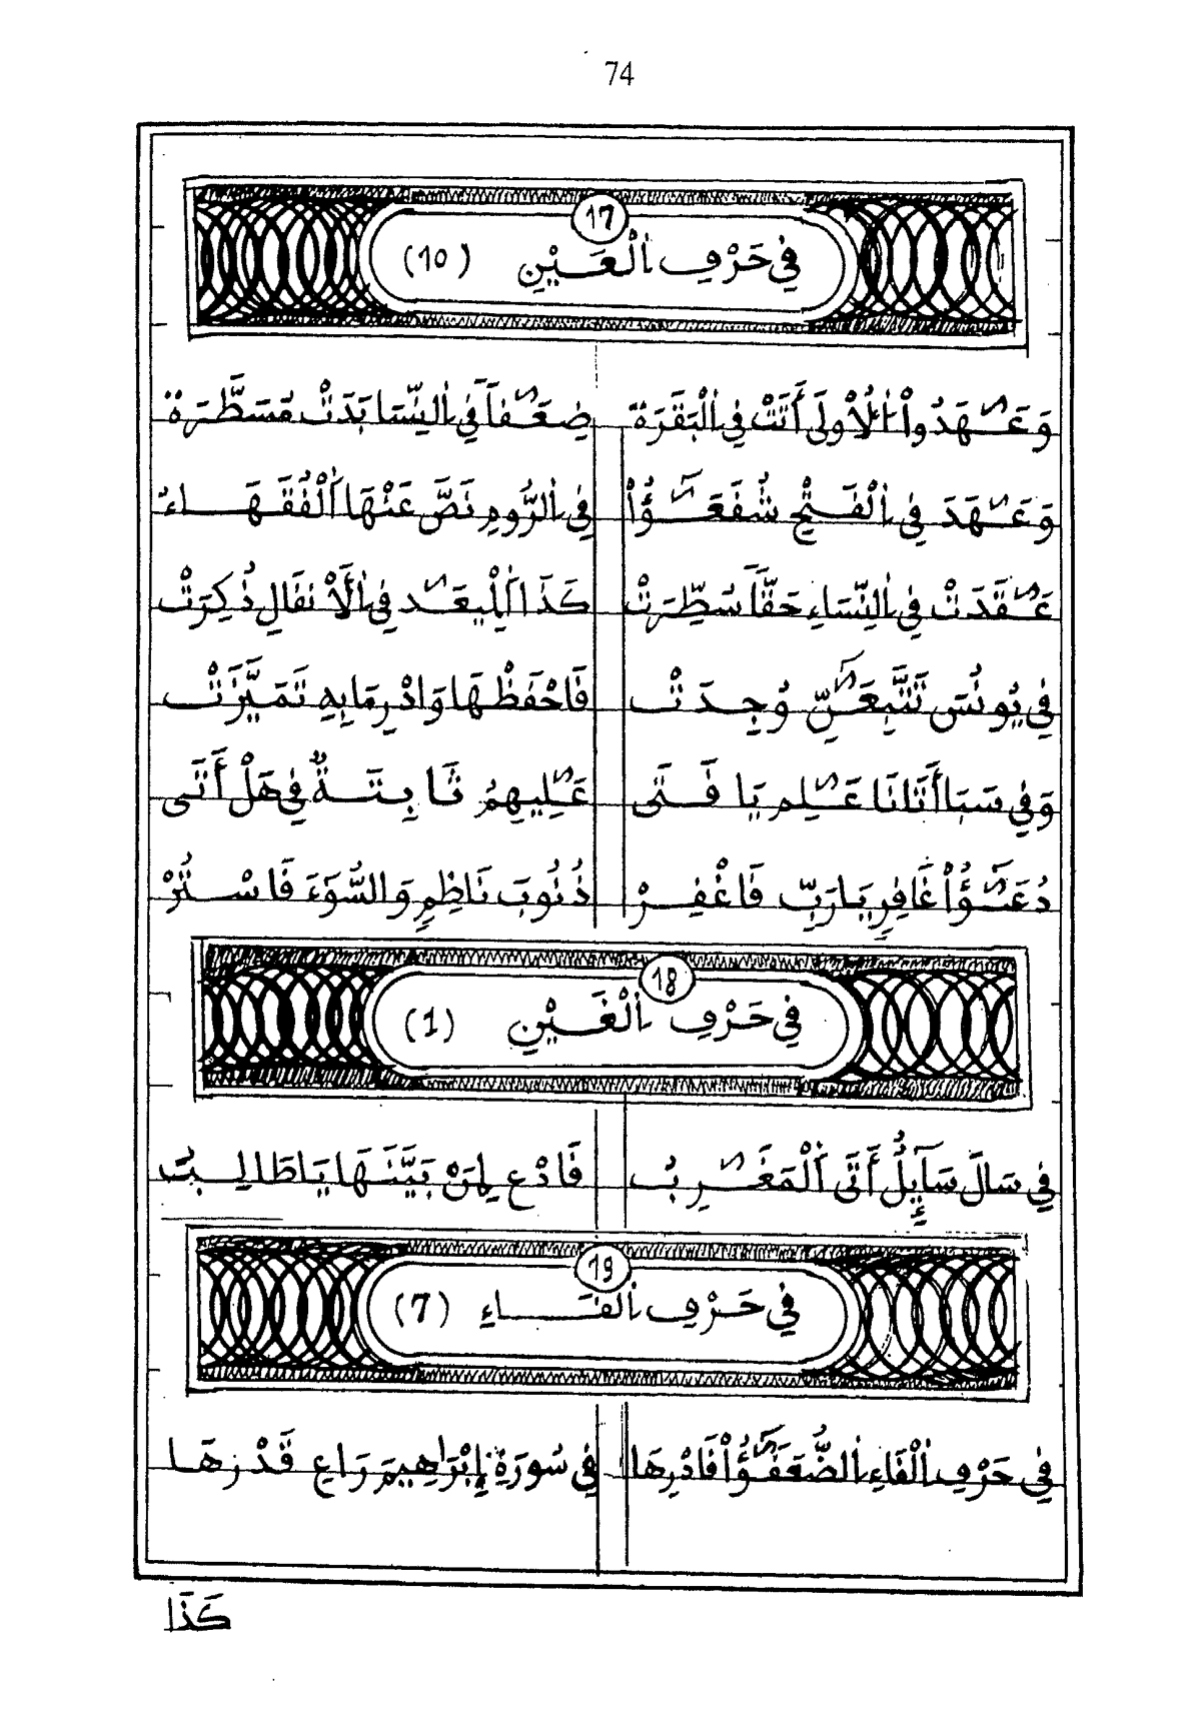 74
17
فِي حَرْفِ اِ۬لْعَيْنِ (10)
وَعَٰهَدُواْ اُ۬لْأُولَىٰ أَتَتْ فِي اِ۬لْبَقَرَةْ ضِعَٰفاً فِي اِ۬لنِّسَا بَدَتْ مُسَطَّرَةْ
وَعَٰهَدَ فِي اِ۬لْفَتْحِ شُفَعَٰٓؤُاْ فِي اِ۬لرُّومِ نَصَّ عَنْهَا اَ۬لْفُقَهَاءُ
عَٰقَدَتْ فِي اِ۬لنِّسَاءِ حَقّاً سُطِّرَتْ كَذَا اَ۬لْمِيعَٰدِ فِي اِ۬لَأنفَالِ ذُكِرَتْ
فِي يُونُسَ تَتَّبِعَٰٓنِّ وُجِدَتْ فَاحْفَظْهَا وَادْرِ مَا بِهِ تَمَيَّزَتْ
وَفِي سَبَا أَتَانَا عَٰلِمِ يَا فَتَى عَٰلِيهِمُ ثَابِتَةٌ فِي هَلْ أَتَى
دُعَٰٓؤُاْ غَافِرٍ يَا رَبِّ فَاغْفِرْ ذُنُوبَ نَاظِمٍ وَالسُّوَءَ فَاسْتُرْ
18
فِي حَرْفِ اِ۬لْغَيْنِ (1)
فِي سَالَ سَآئِلٌ أَتَى اَ۬لْمَغَٰرِبُ فَادْعِ لِمَنْ بَيَّنَهَا يَا طَالِبُ
19
فِي حَرْفِ اِ۬لْفَاءِ (7)
فِي حَرْفِ اِ۬لْفَاءِ اِ۬لضُّعَفَٰٓؤُاْ فَادْرِهَا فِي سُورَةِ إِبْرَاهِيمَ رَاعِ قَدْرَهَا
كَذَا